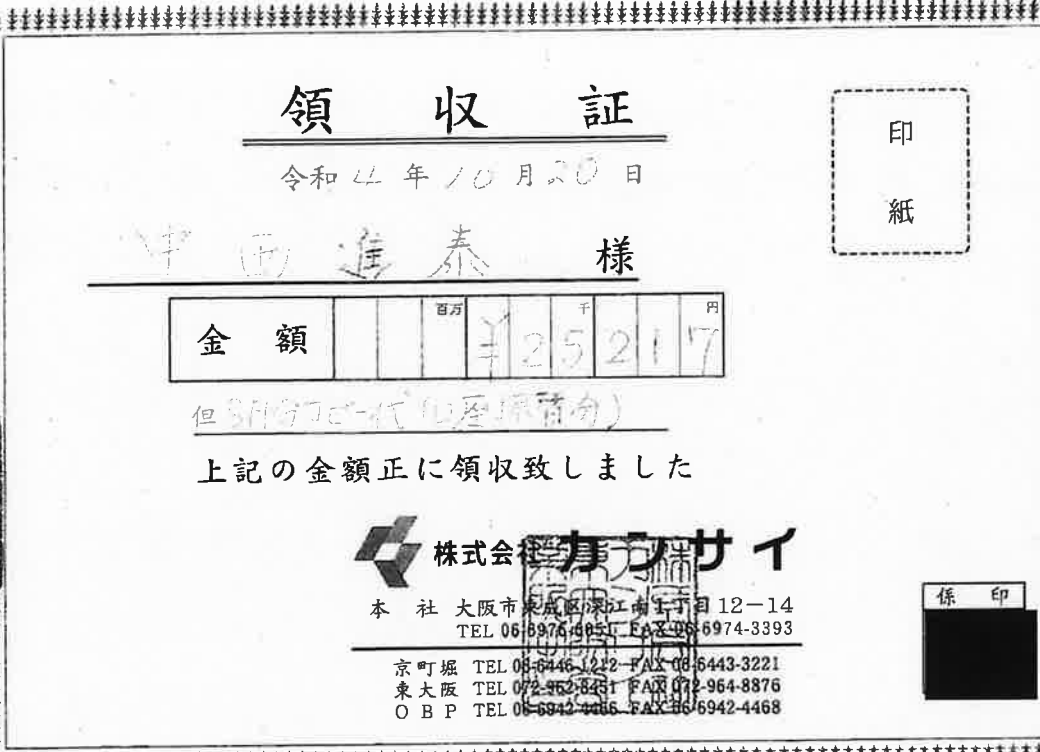 領収証
印紙
令和4年10月20日
中西進泰 様
百万 千 円
金額 ¥25217
但 コピー代(口座振替分)
上記の金額正に領収致しました
株式会社カンサイ
本社 大阪市東成区深江南1丁目12-14
TEL 06-6976-6851 FAX 06-6974-3393
京町堀 TEL 06-6446-1212 FAX 06-6443-3221
東大阪 TEL 072-962-8451 FAX 072-964-8876
OBP TEL 06-6942-4466 FAX 06-6942-4468
係印